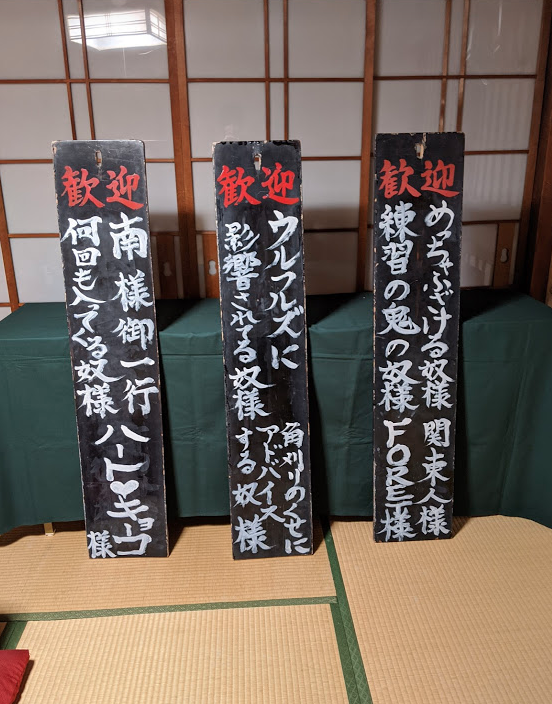 歓迎
めっちゃふざける奴様
練習の鬼の奴様
関東人様
歓迎
ウルフルズに
影響されてる奴様
角刈りのくせに
アドバイス
する奴様
歓迎
南様御一行
何回も入てくる奴様
ハート♥キョコ
様